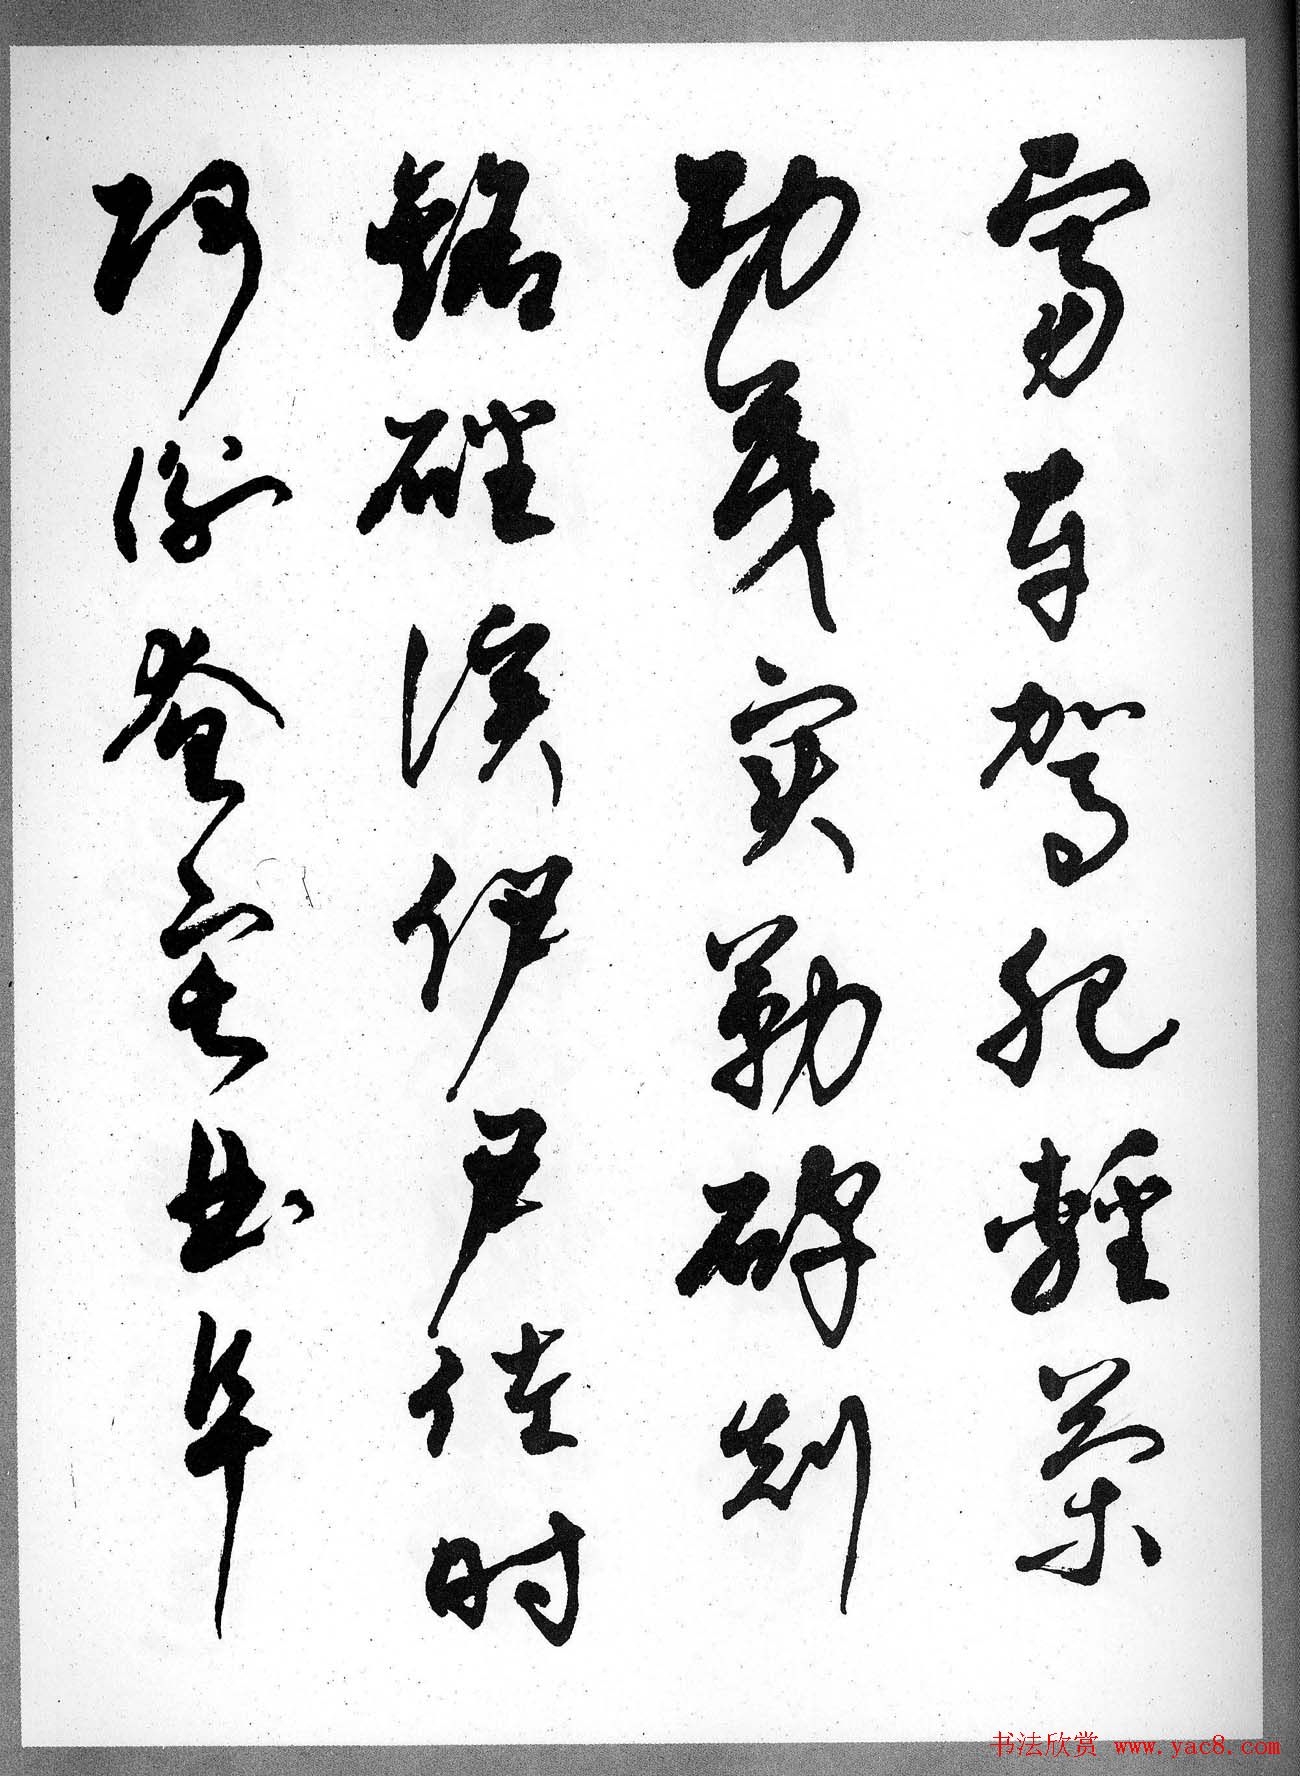 富车驾肥轻策
功茂实勒碑刻
铭磻溪伊尹佐时
阿衡奄宅曲阜
书法欣赏 www.yac8.com